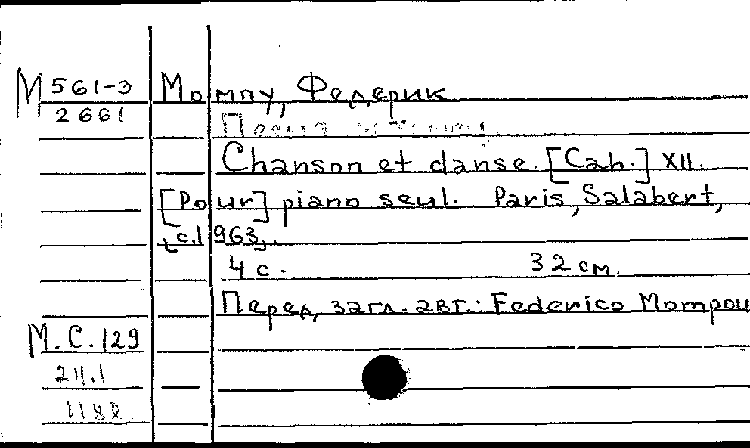 М 561-3
2661
Момпу, Федерик
Песня
Chanson et danse. [Cah.] XII.
[Pour] piano seul. Paris, Salabert,
c.1963.
4 с. 32 см.
Перед загл. авт.: Federico Mompou
М.С.129
24.1
1188